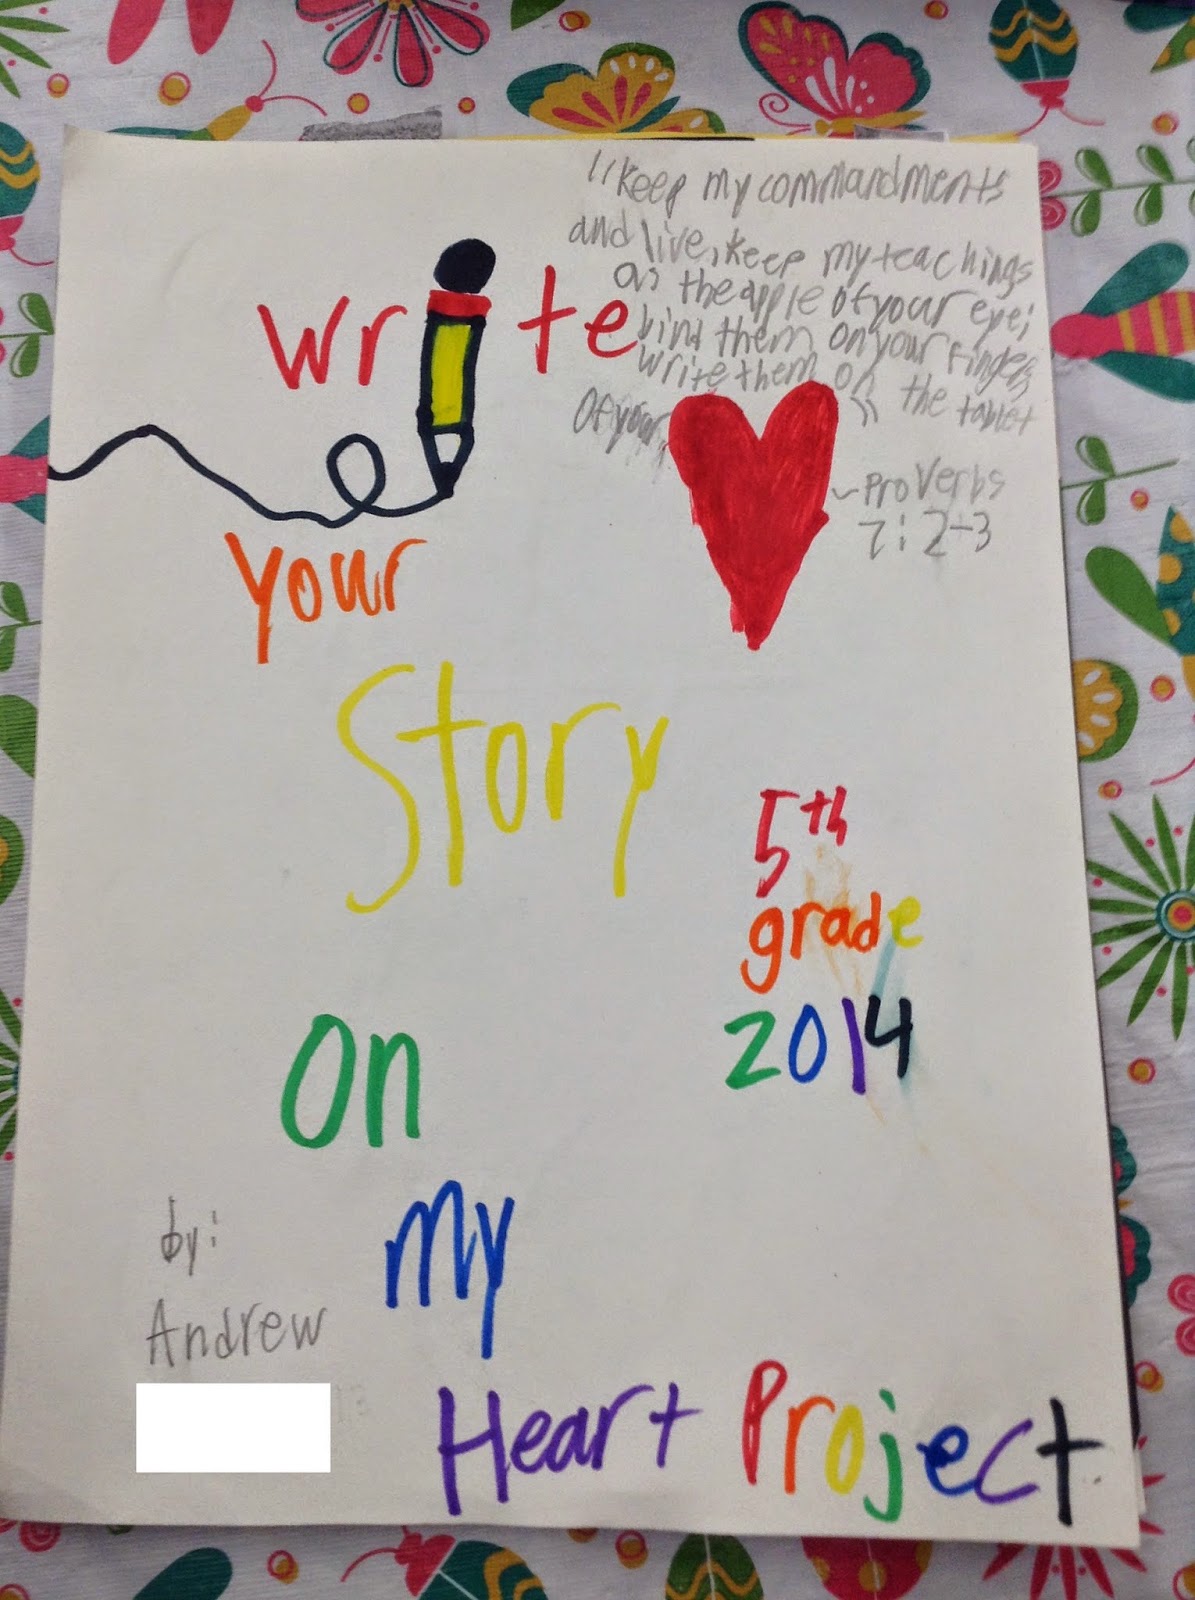 "keep my commandments
and live, keep my teachings
as the apple of your eye;
bind them on your fingers
write them on the tablet
of your
"
~Proverbs
7:2-3
write
your
Story
5th
grade
2014
On
my
Heart Project
by:
Andrew